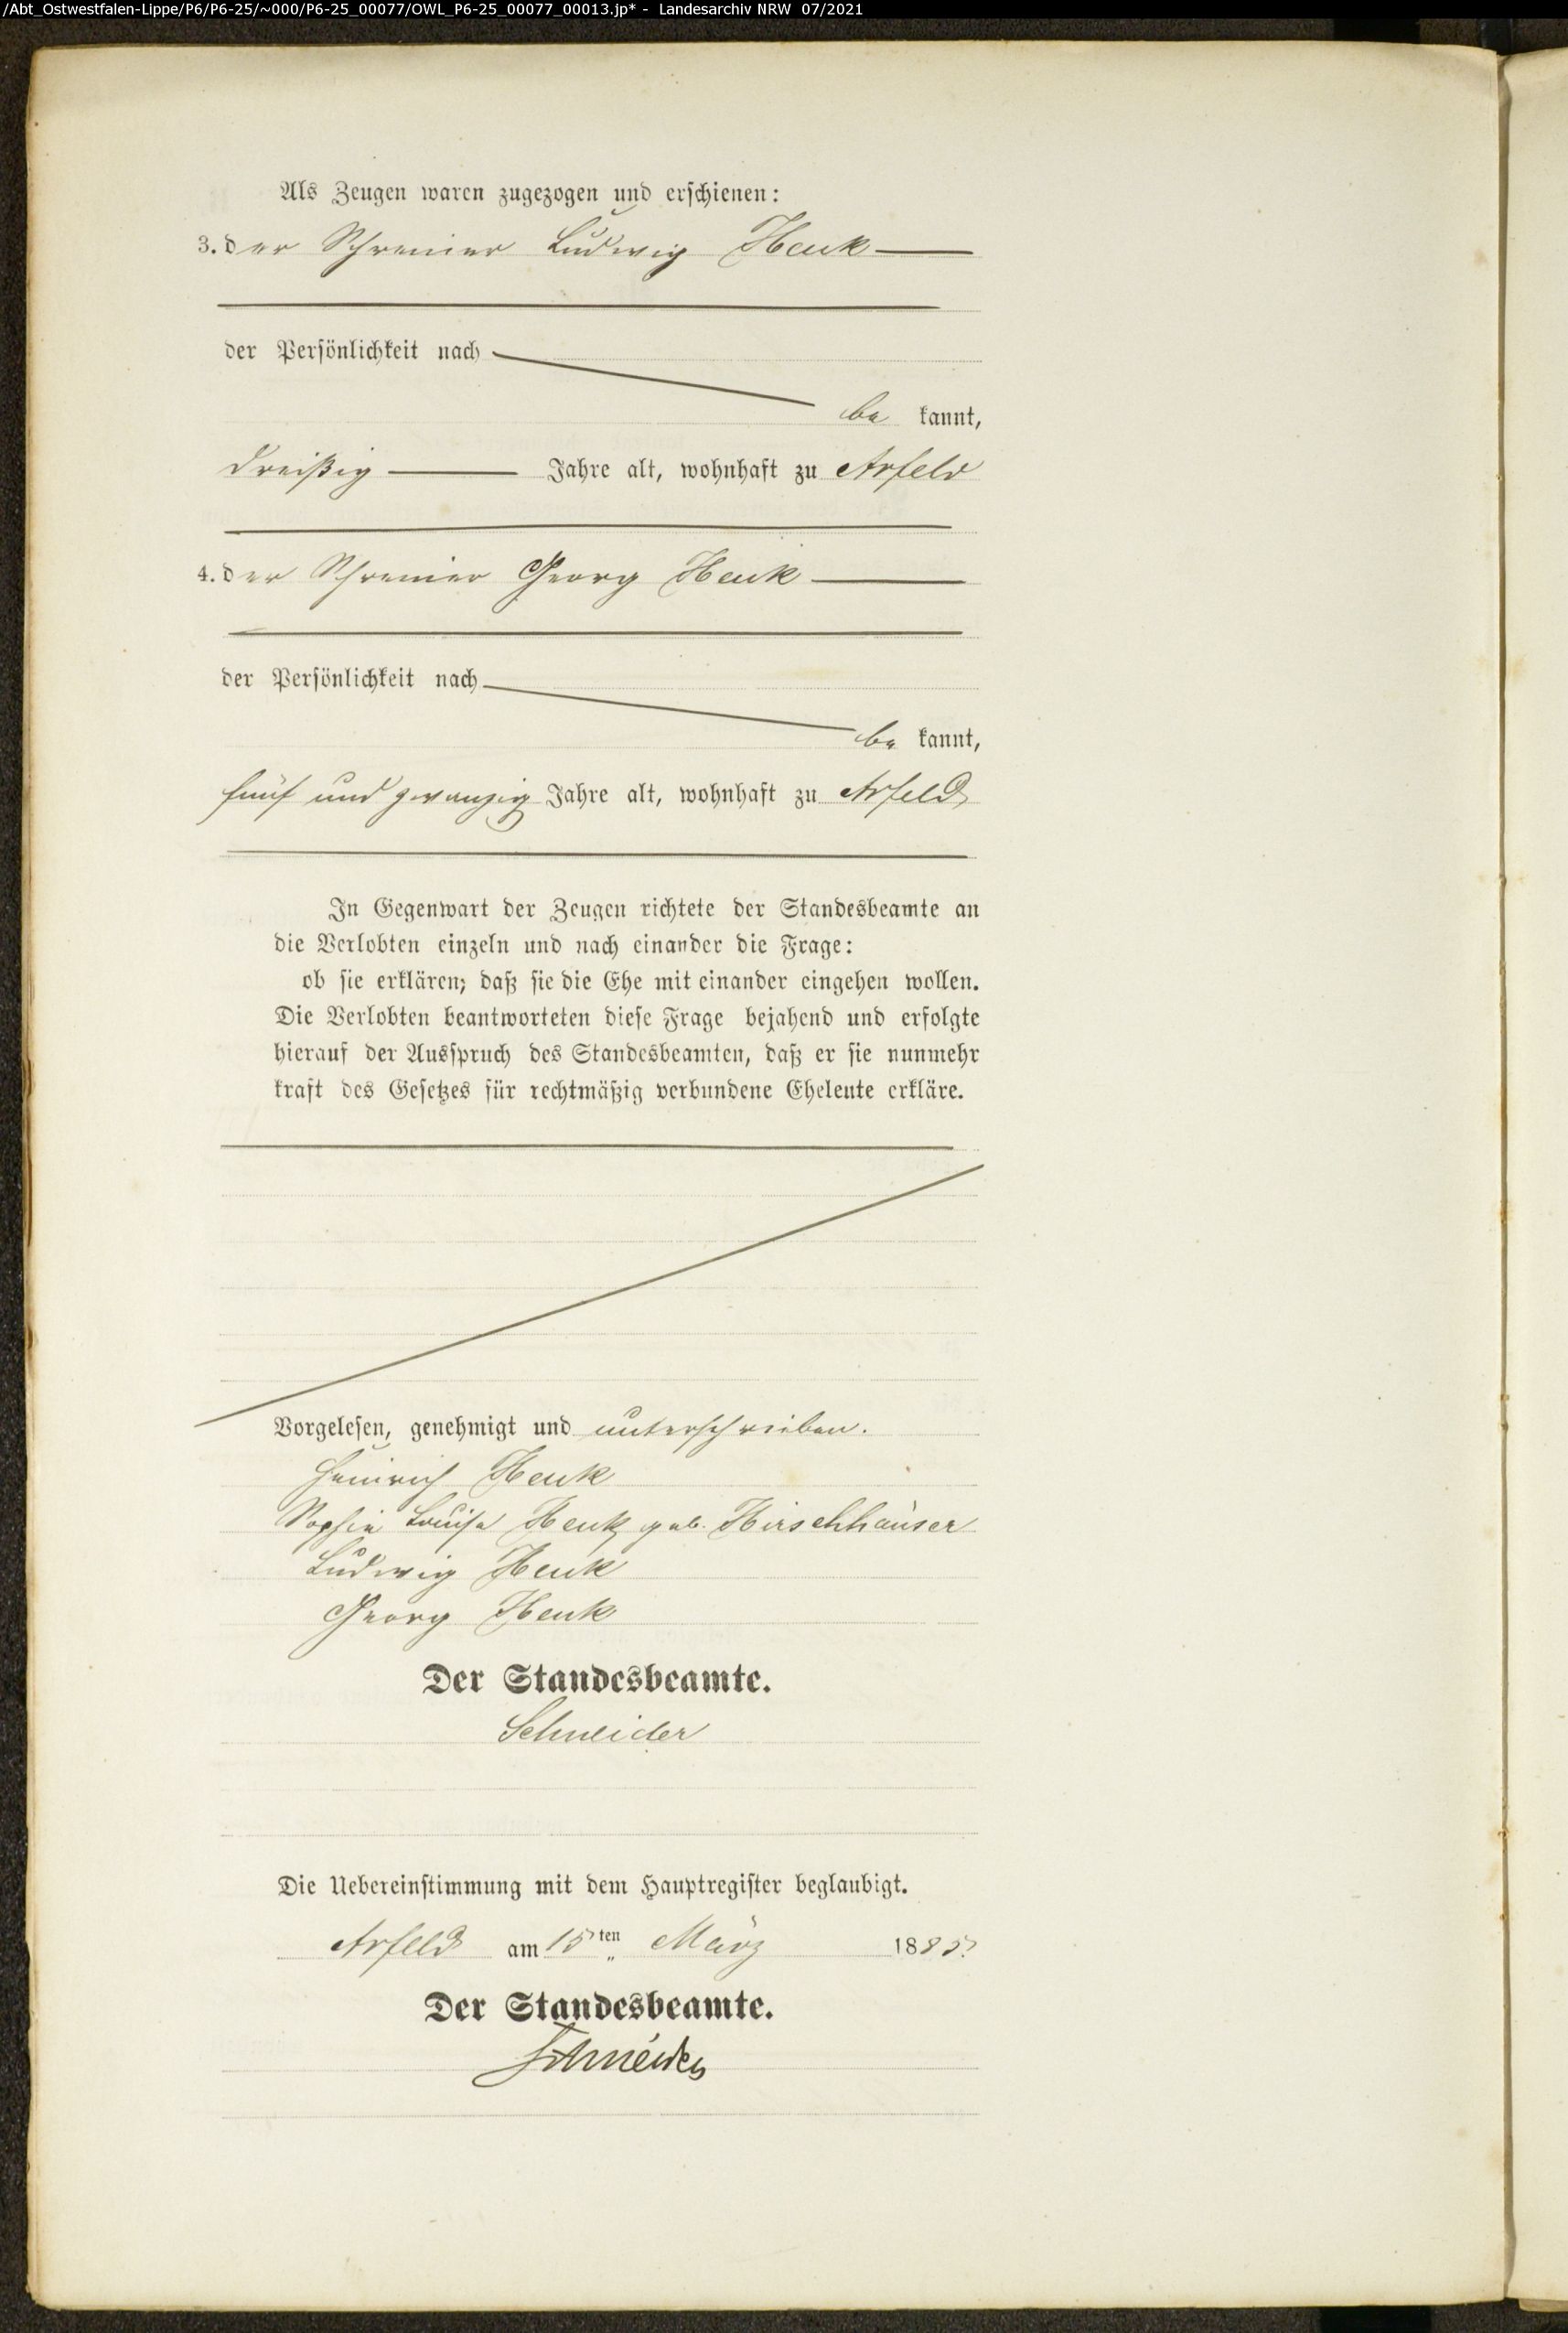 /Abt_Ostwestfalen-Lippe/P6/P6-25/~000/P6-25_00077/OWL_P6-25_00077_00013.jp* - Landesarchiv NRW 07/2021
Als Zeugen waren zugezogen und erschienen:
3. der Schreiner Ludwig Henk
der Persönlichkeit nach
be kannt,
dreißig Jahre alt, wohnhaft zu Arfeld
4. der Schreiner Georg Henk
der Persönlichkeit nach
be kannt,
fünf und zwanzig Jahre alt, wohnhaft zu Arfeld
In Gegenwart der Zeugen richtete der Standesbeamte an
die Verlobten einzeln und nach einander die Frage:
ob sie erklären; daß sie die Ehe mit einander eingehen wollen.
Die Verlobten beantworteten diese Frage bejahend und erfolgte
hierauf der Ausspruch des Standesbeamten, daß er sie nunmehr
kraft des Gesetzes für rechtmäßig verbundene Eheleute erkläre.
Vorgelesen, genehmigt und unterschrieben.
Heinrich Henk
Sophie Louise Henk geb. Hirschhäuser
Ludwig Henk
Georg Henk
Der Standesbeamte.
Schneider
Die Uebereinstimmung mit dem Hauptregister beglaubigt.
Arfeld am 15ten März 1885.
Der Standesbeamte.
Schneider